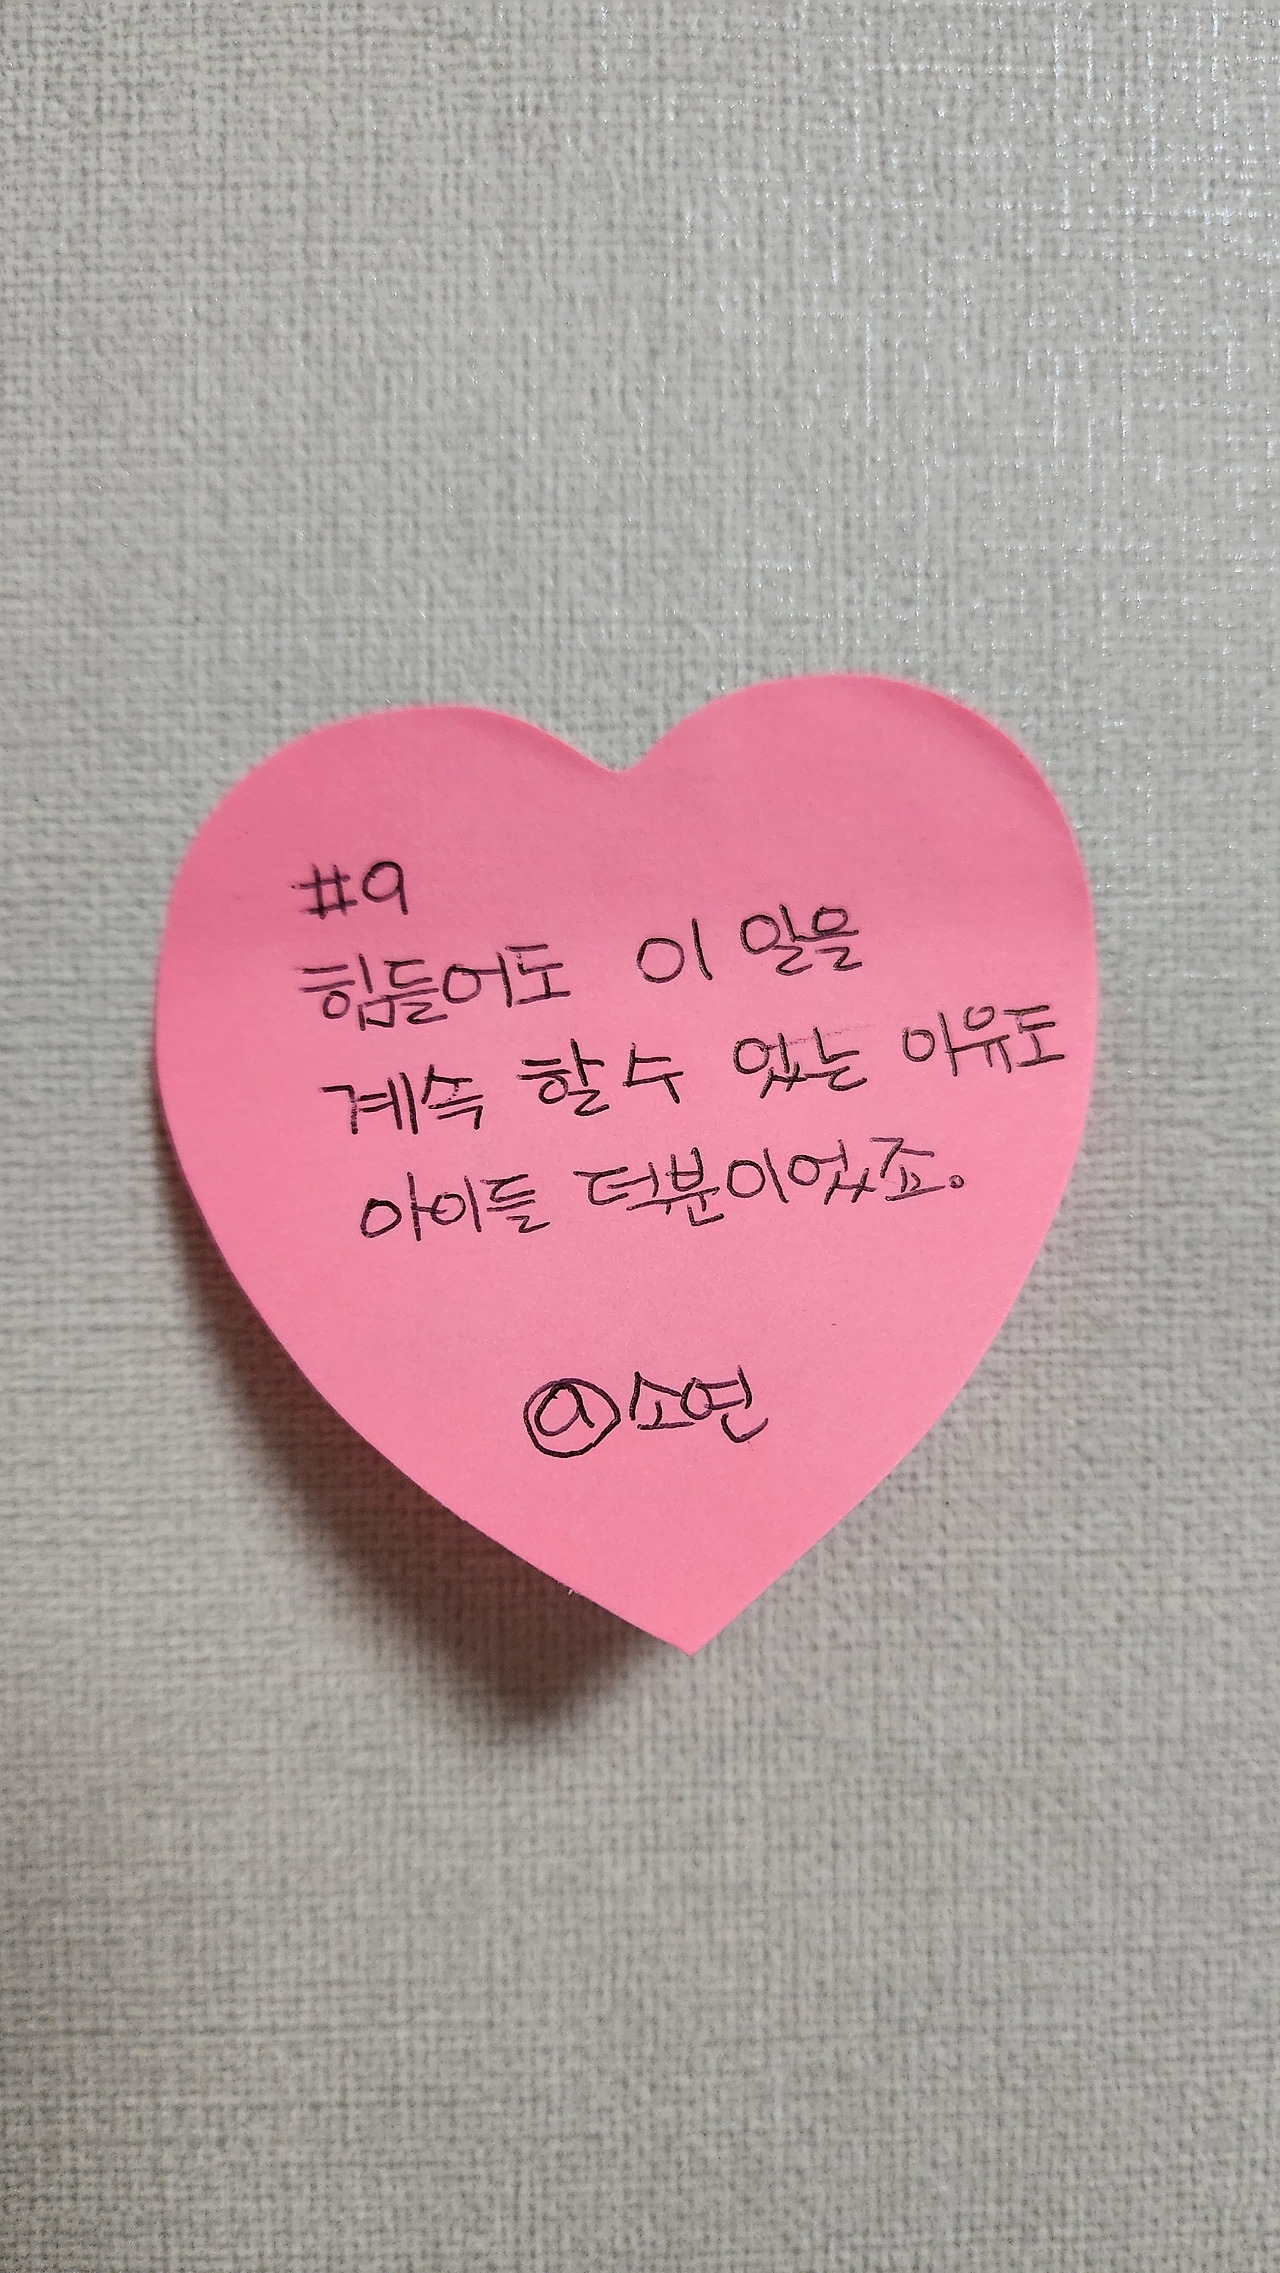 #9
힘들어도 이 일을
계속 할 수 있는 이유도
아이들 덕분이었죠.
@소연